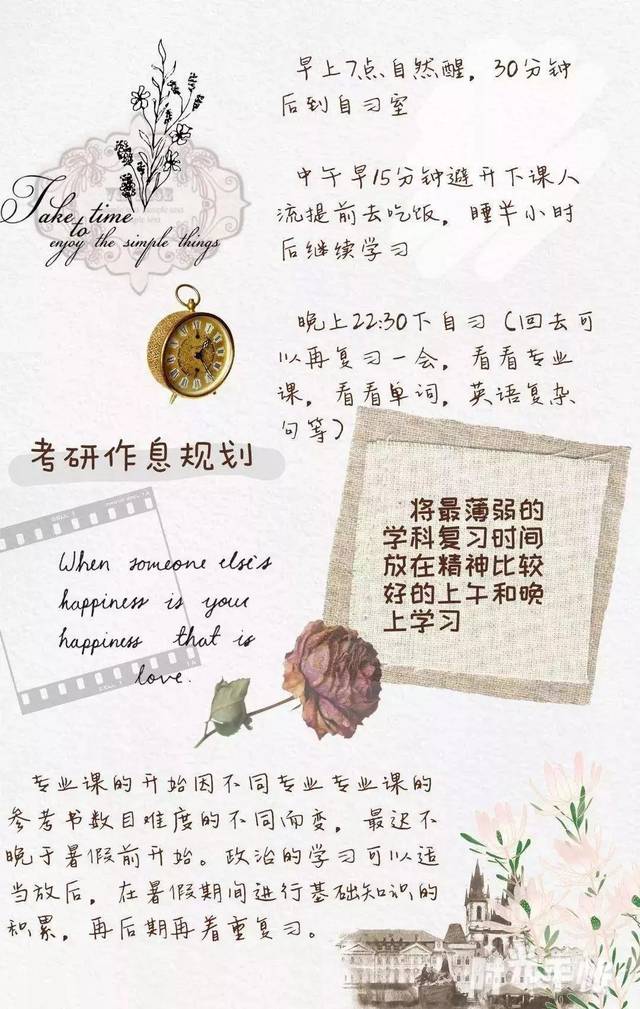 早上7点自然醒，30分钟
后到自习室
中午早15分钟避开下课人
流提前去吃饭，睡半小时
后继续学习
Take time
to
enjoy the simple things
晚上22:30下自习（回去可
以再复习一会，看看专业
课，看看单词，英语复杂
句等）
考研作息规划
将最薄弱的
学科复习时间
放在精神比较
好的上午和晚
上学习
When someone else's
happiness is your
happiness that is
love.
专业课的开始因不同专业专业课的
参考书数目难度的不同而变，最迟不
晚于暑假前开始。政治的学习可以适
当放后，在暑假期间进行基础知识的
积累，再后期再着重复习。
时光手帐